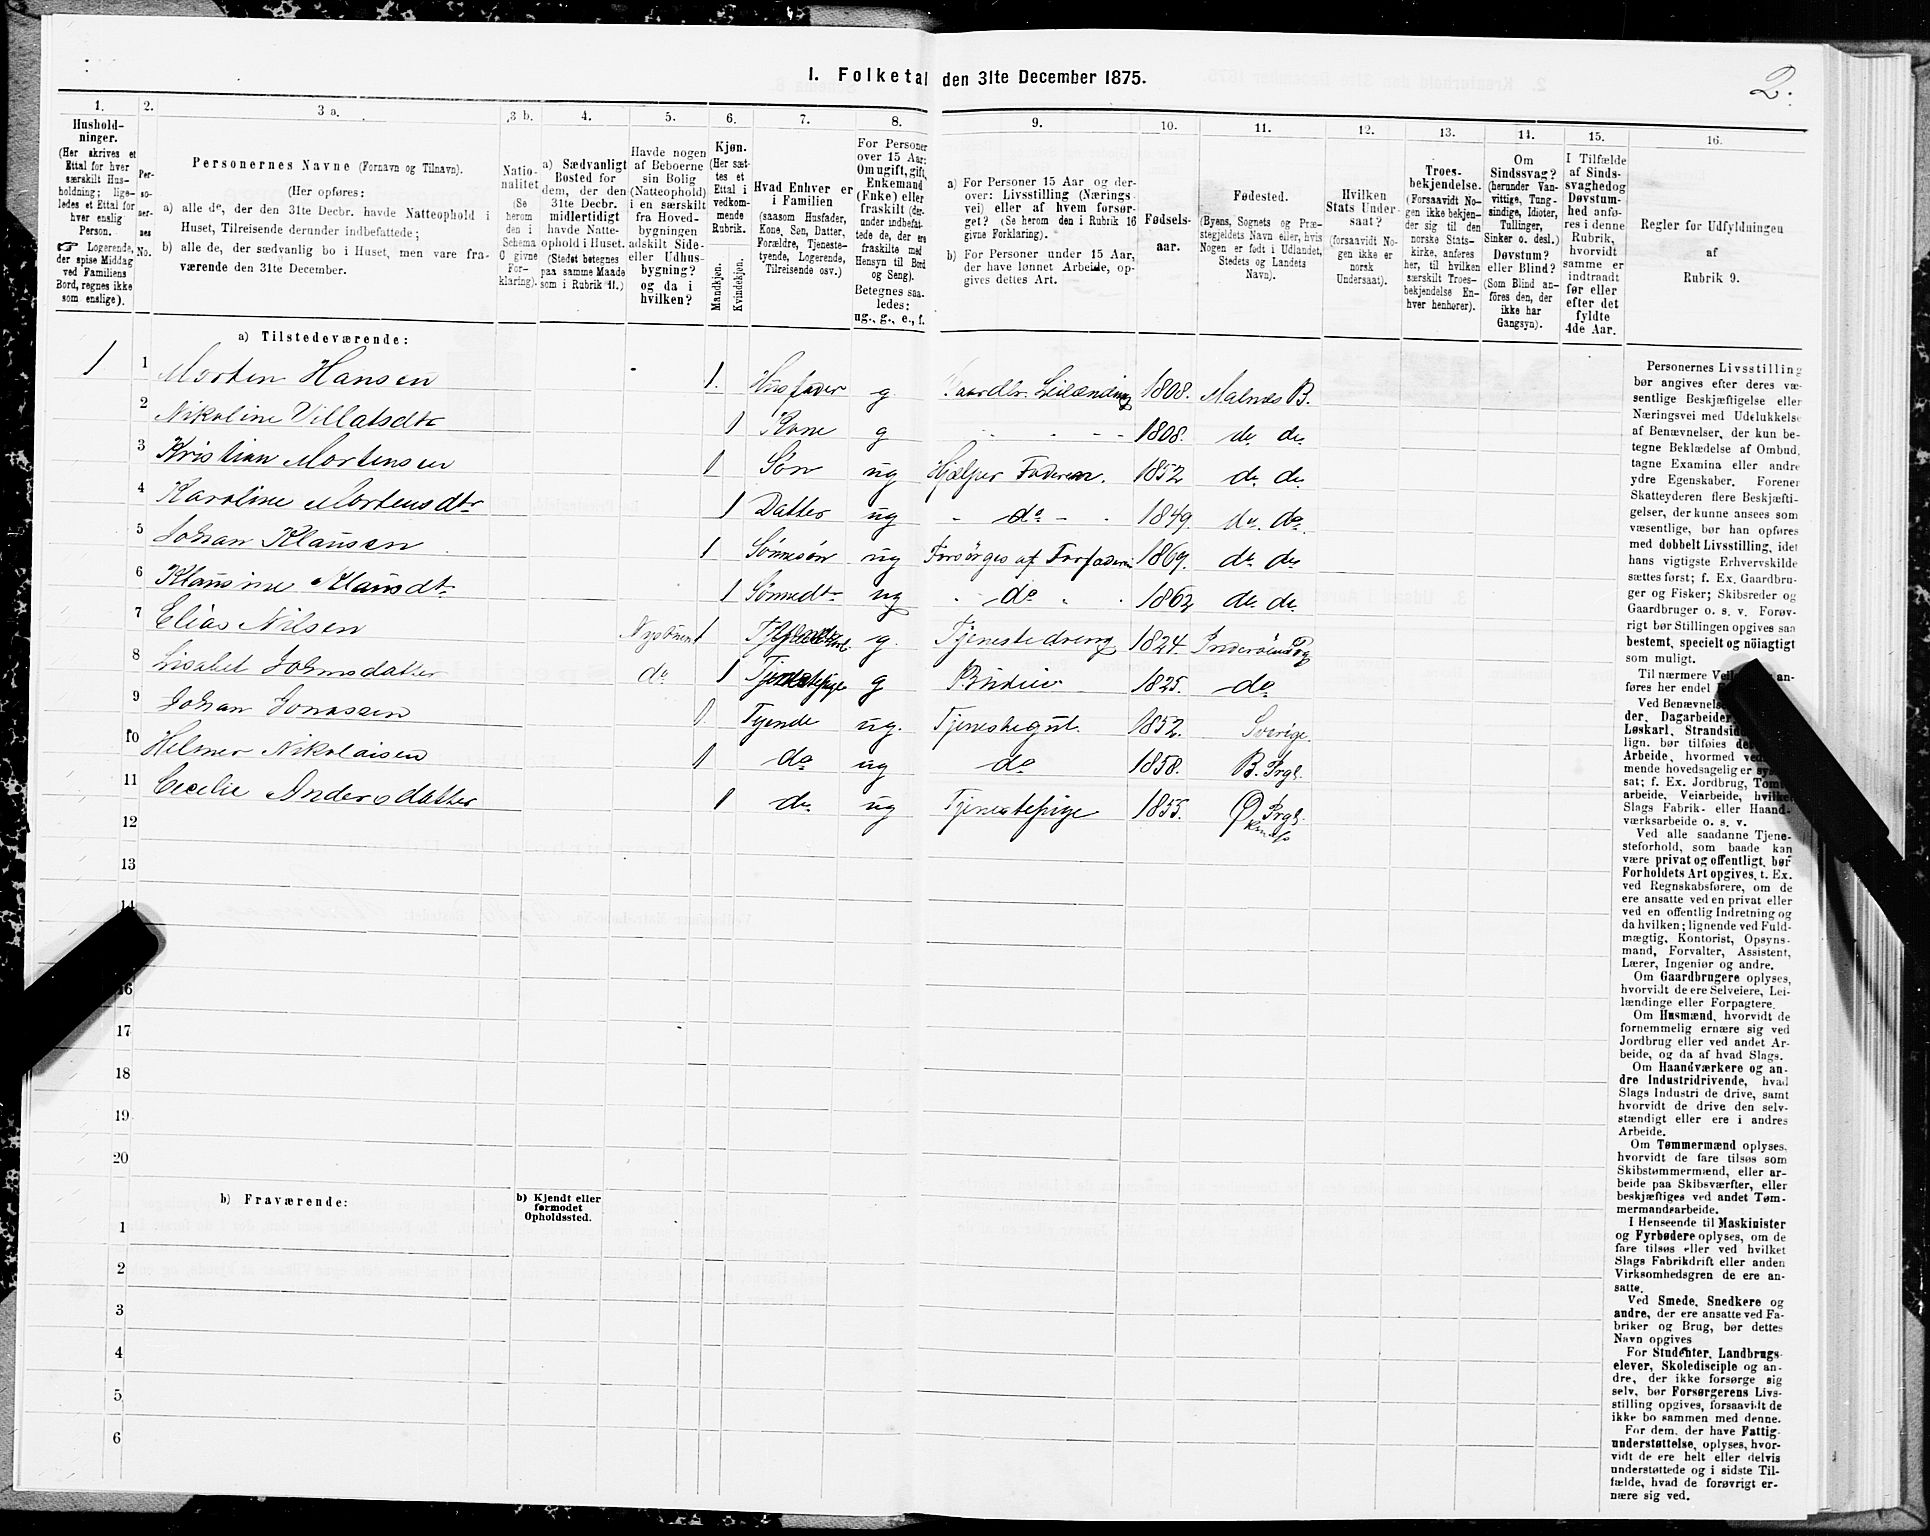 I. Folketal den 31te December 1875.
2.
1.
Hushold-
ninger.
(Her skrives et
Ettal for hver
særskilt Hus-
holdning; lige-
ledes et Ettal for
hver enslig
Person.
☞ Logerende,
der spise Middag
ved Familiens
Bord, regnes ikke
som enslige).
2.
Per-
so-
ner-
nes
No.
3 a.
Personernes Navne (Fornavn og Tilnavn).
(Her opføres:
a) alle de, der den 31te Decbr. havde Natteophold i
Huset, Tilreisende derunder indbefattede;
b) alle de, der sædvanlig bo i Huset, men vare fra-
værende den 31te December.
3 b.
Natio-
nalitet
(Se
herom
den i
Schema
C givne
For-
klaring).
4.
a) Sædvanligt
Bosted for
dem, der den
31te Decbr.
midlertidigt
havde Natte-
ophold i Huset.
(Stedet betegnes
paa samme Maade
som i Rubrik 11.)
5.
Havde nogen
af Beboerne
sin Bolig
(Natteophold)
i en særskilt
fra Hoved-
bygningen
adskilt Side-
eller Udhus-
bygning?
og da i
hvilken?
6.
Kjøn.
(Her sæt-
tes et
Ettal i
vedkom-
mende
Rubrik.
Mandkjøn.
Kvindekjøn.
7.
Hvad Enhver er
i Familien
(saasom Husfader,
Kone, Søn, Datter,
Forældre, Tjeneste-
tyende, Logerende,
Tilreisende osv.)
8.
For Personer
over 15 Aar:
Om ugift, gift,
Enkemand
(Enke) eller
fraskilt (der-
under indbefat-
tede de, der ere
fraskilte med
Hensyn til Bord
og Seng).
Betegnes saa-
ledes:
ug., g., e., f.
9.
a) For Personer 15 Aar og der-
over: Livsstilling (Nærings-
vei) eller af hvem forsør-
get? (Se herom den i Rubrik 16
givne Forklaring).
b) For Personer under 15 Aar,
der have lønnet Arbeide, op-
gives dettes Art.
10.
Fødsels-
aar.
11.
Fødested.
(Byens, Sognets og Præ-
stegjeldets Navn eller, hvis
Nogen er født i Udlandet,
Stedets og Landets
Navn).
12.
Hvilken
Stats Under-
saat?
(forsaavidt No-
gen ikke er
norsk
Undersaat).
13.
Troes-
bekjendelse.
(Forsaavidt No-
gen ikke bekjen-
der sig til den
norske Stats-
kirke, anføres
her, til hvilken
særskilt Troes-
bekjendelse En-
hver henhører).
14.
Om
Sindssvag?
(herunder Van-
vittige, Tung-
sindige, Idioter,
Tullinger,
Sinker o. desl.)
Døvstum?
eller Blind?
(Som Blind an-
føres den, der
ikke har
Gangsyn).
15.
I Tilfælde
af Sinds-
svaghed og
Døvstum-
hed anfø-
res i denne
Rubrik,
hvorvidt
samme er
indtraadt
før eller
efter det
fyldte
4de Aar.
16.
Regler for Udfyldningen
af
Rubrik 9.
a) Tilstedeværende:
1 1 Morten Hansen 1. Husfader g. Gaardbr. Leilænding 1808. Malnæs B.
2 Nikoline Villatsdtr 1 Kone g - - - 1808. do do
3 Kristian Mortensen 1 Søn ug Hjælper Faderen. 1852 do do
4 Karoline Mortensdtr 1 Datter ug - do - 1849. do. do.
5 Johan Klausen 1 Sønnesøn ug Forsørges af Farfaderen 1869. do do
6 Klausine Klausdtr 1 Sønnedtr ug - do - 1862 do do.
7 Elias Nilsen 1 g. Tjenestedreng 1824.
8 Lisabet Johnsdatter do 1 Tjenestepige g 1825. do
9 Johan Jonassen 1 Tyende ug. Tjenestegut. 1852. Sverige.
10 Helmer Nikolaisen 1 do ug do 1858. B. Prgl.
11 Cecilie Andersdatter 1 do. ug Tjenestepige 1855. Prgl.
12
13
14
16
17
18
19
20
b) Fraværende:
b) Kjendt eller
formodet
Opholdssted.
1
2
3
4
5
6
Personernes Livsstilling
bør angives efter deres væ-
sentlige Beskjæftigelse eller
Næringsvei med Udelukkelse
af Benævnelser, der kun be-
tegne Beklædelse af Ombud,
tagne Examina eller andre
ydre Egenskaber. Forener
Skatteyderen flere Beskjæfti-
gelser, der kunne ansees som
væsentlige, bør han opføres
med dobbelt Livsstilling, idet
hans vigtigste Erhvervskilde
sættes først; f. Ex. Gaardbru-
ger og Fisker; Skibsreder og
Gaardbruger o. s. v. Forøv-
rigt bør Stillingen opgives saa
bestemt, specielt og nøiagtigt
som muligt.
Til nærmere an-
føres her endel
Ved Benævnels
der, Dagarbeider,
Løskarl, Strandsid
lign. bør tilføies
Arbeide, hvormed ved
mende hovedsagelig er
sat; f. Ex. Jordbrug, Tom
arbeide, Veiarbeide, hvilke
Slags Fabrik- eller Haand-
værksarbeide o. s. v.
Ved alle saadanne Tjene-
steforhold, som baade kan
være privat og offentligt, bør
Forholdets Art opgives, t. Ex.
ved Regnskabsførere, om de
ere ansatte ved en privat eller
ved en offentlig Indretning og
da hvilken; lignende ved Fuld-
mægtig, Kontorist, Opsyns-
mand, Forvalter, Assistent,
Lærer, Ingeniør og andre.
Om Gaardbrugere oplyses,
hvorvidt de ere Selveiere, Lei-
lændinge eller Forpagtere.
Om Husmænd, hvorvidt de
fornemmelig ernære sig ved
Jordbrug eller ved andet Ar-
beide, og da af hvad Slags.
Om Haandværkere og an-
dre Industridrivende, hvad
Slags Industri de drive, samt
hvorvidt de drive den selv-
stændigt eller ere i andres
Arbeide.
Om Tømmermænd oplyses,
hvorvidt de fare tilsøs som
Skibstømmermænd, eller ar-
beide paa Skibsværfter, eller
beskjæftiges ved andet Tøm-
mermandsarbeide.
I Henseende til Maskinister
og Fyrbødere oplyses, om de
fare tilsøs eller ved hvilket
Slags Fabrikdrift eller anden
Virksomhedsgren de ere an-
satte.
Ved Smede, Snedkere og
andre, der ere ansatte ved Fa-
briker og Brug, bør dettes
Navn opgives
For Studenter, Landbrugs-
elever, Skoledisciple og an-
dre, der ikke forsørge sig
selv, bør Forsørgerens Livs-
stilling opgives, forsaavidt de
ikke bo sammen med denne.
For dem, der have Fattig-
understøttelse, oplyses, hvor-
vidt de ere helt eller delvis
understøttede og i sidste Til-
fælde, hvad de forøvrigt er-
nære sig ved.